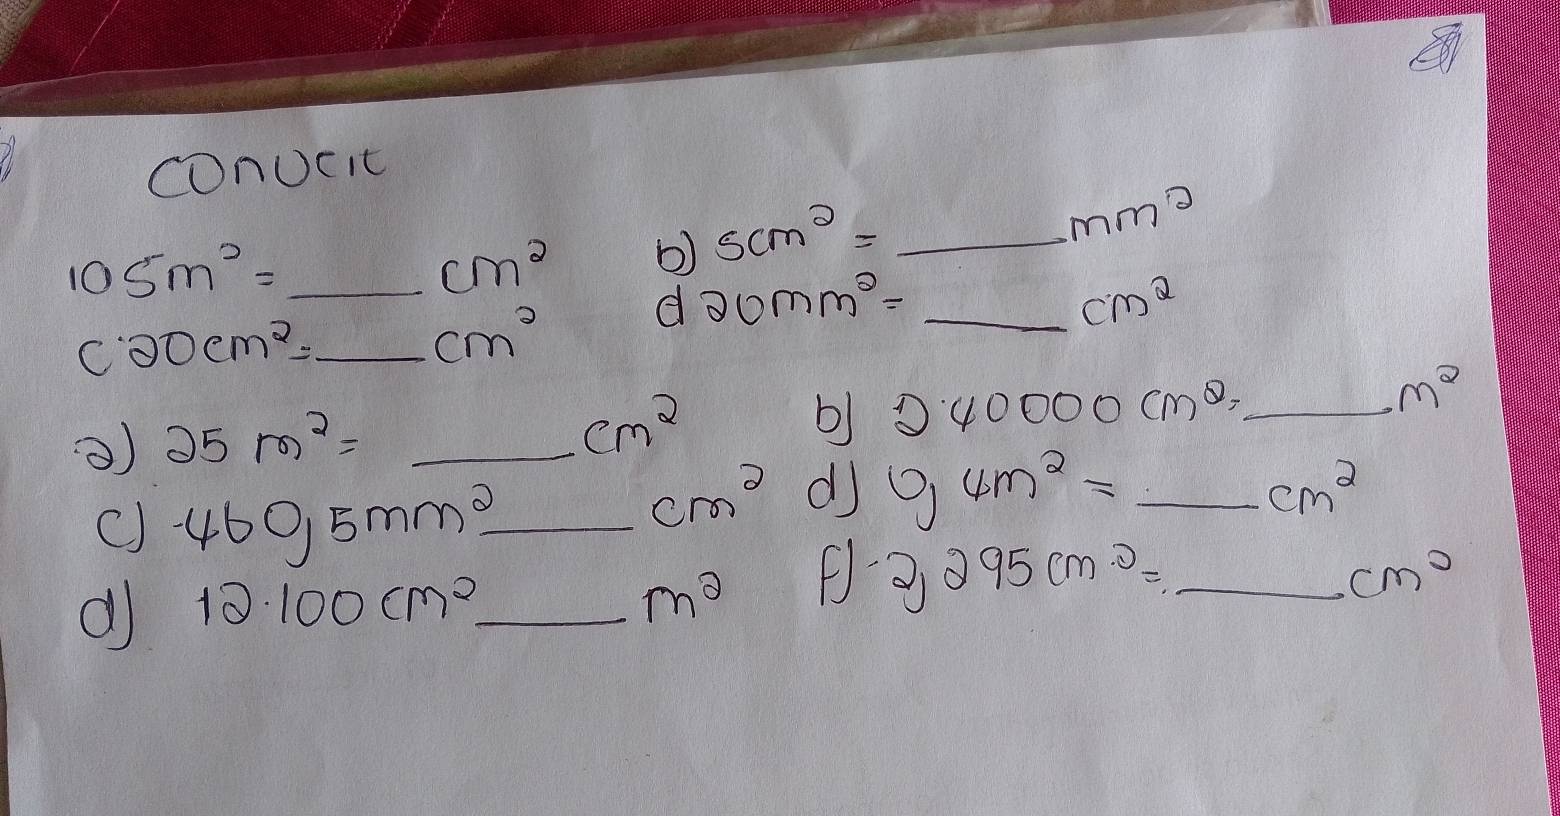 convert
105m² = ____ cm² b) 5cm² = ____ mm²
c 20cm² = ____ cm² d 20mm² = ____ cm²
a) 25 m² = ____ cm² b) 2.40000 cm² = ____ m²
c) 460,5mm² ____ cm² d) 0,4m² = ____ cm²
d) 12.100 cm² ____ m² f) 2,295 cm² = ____ cm²